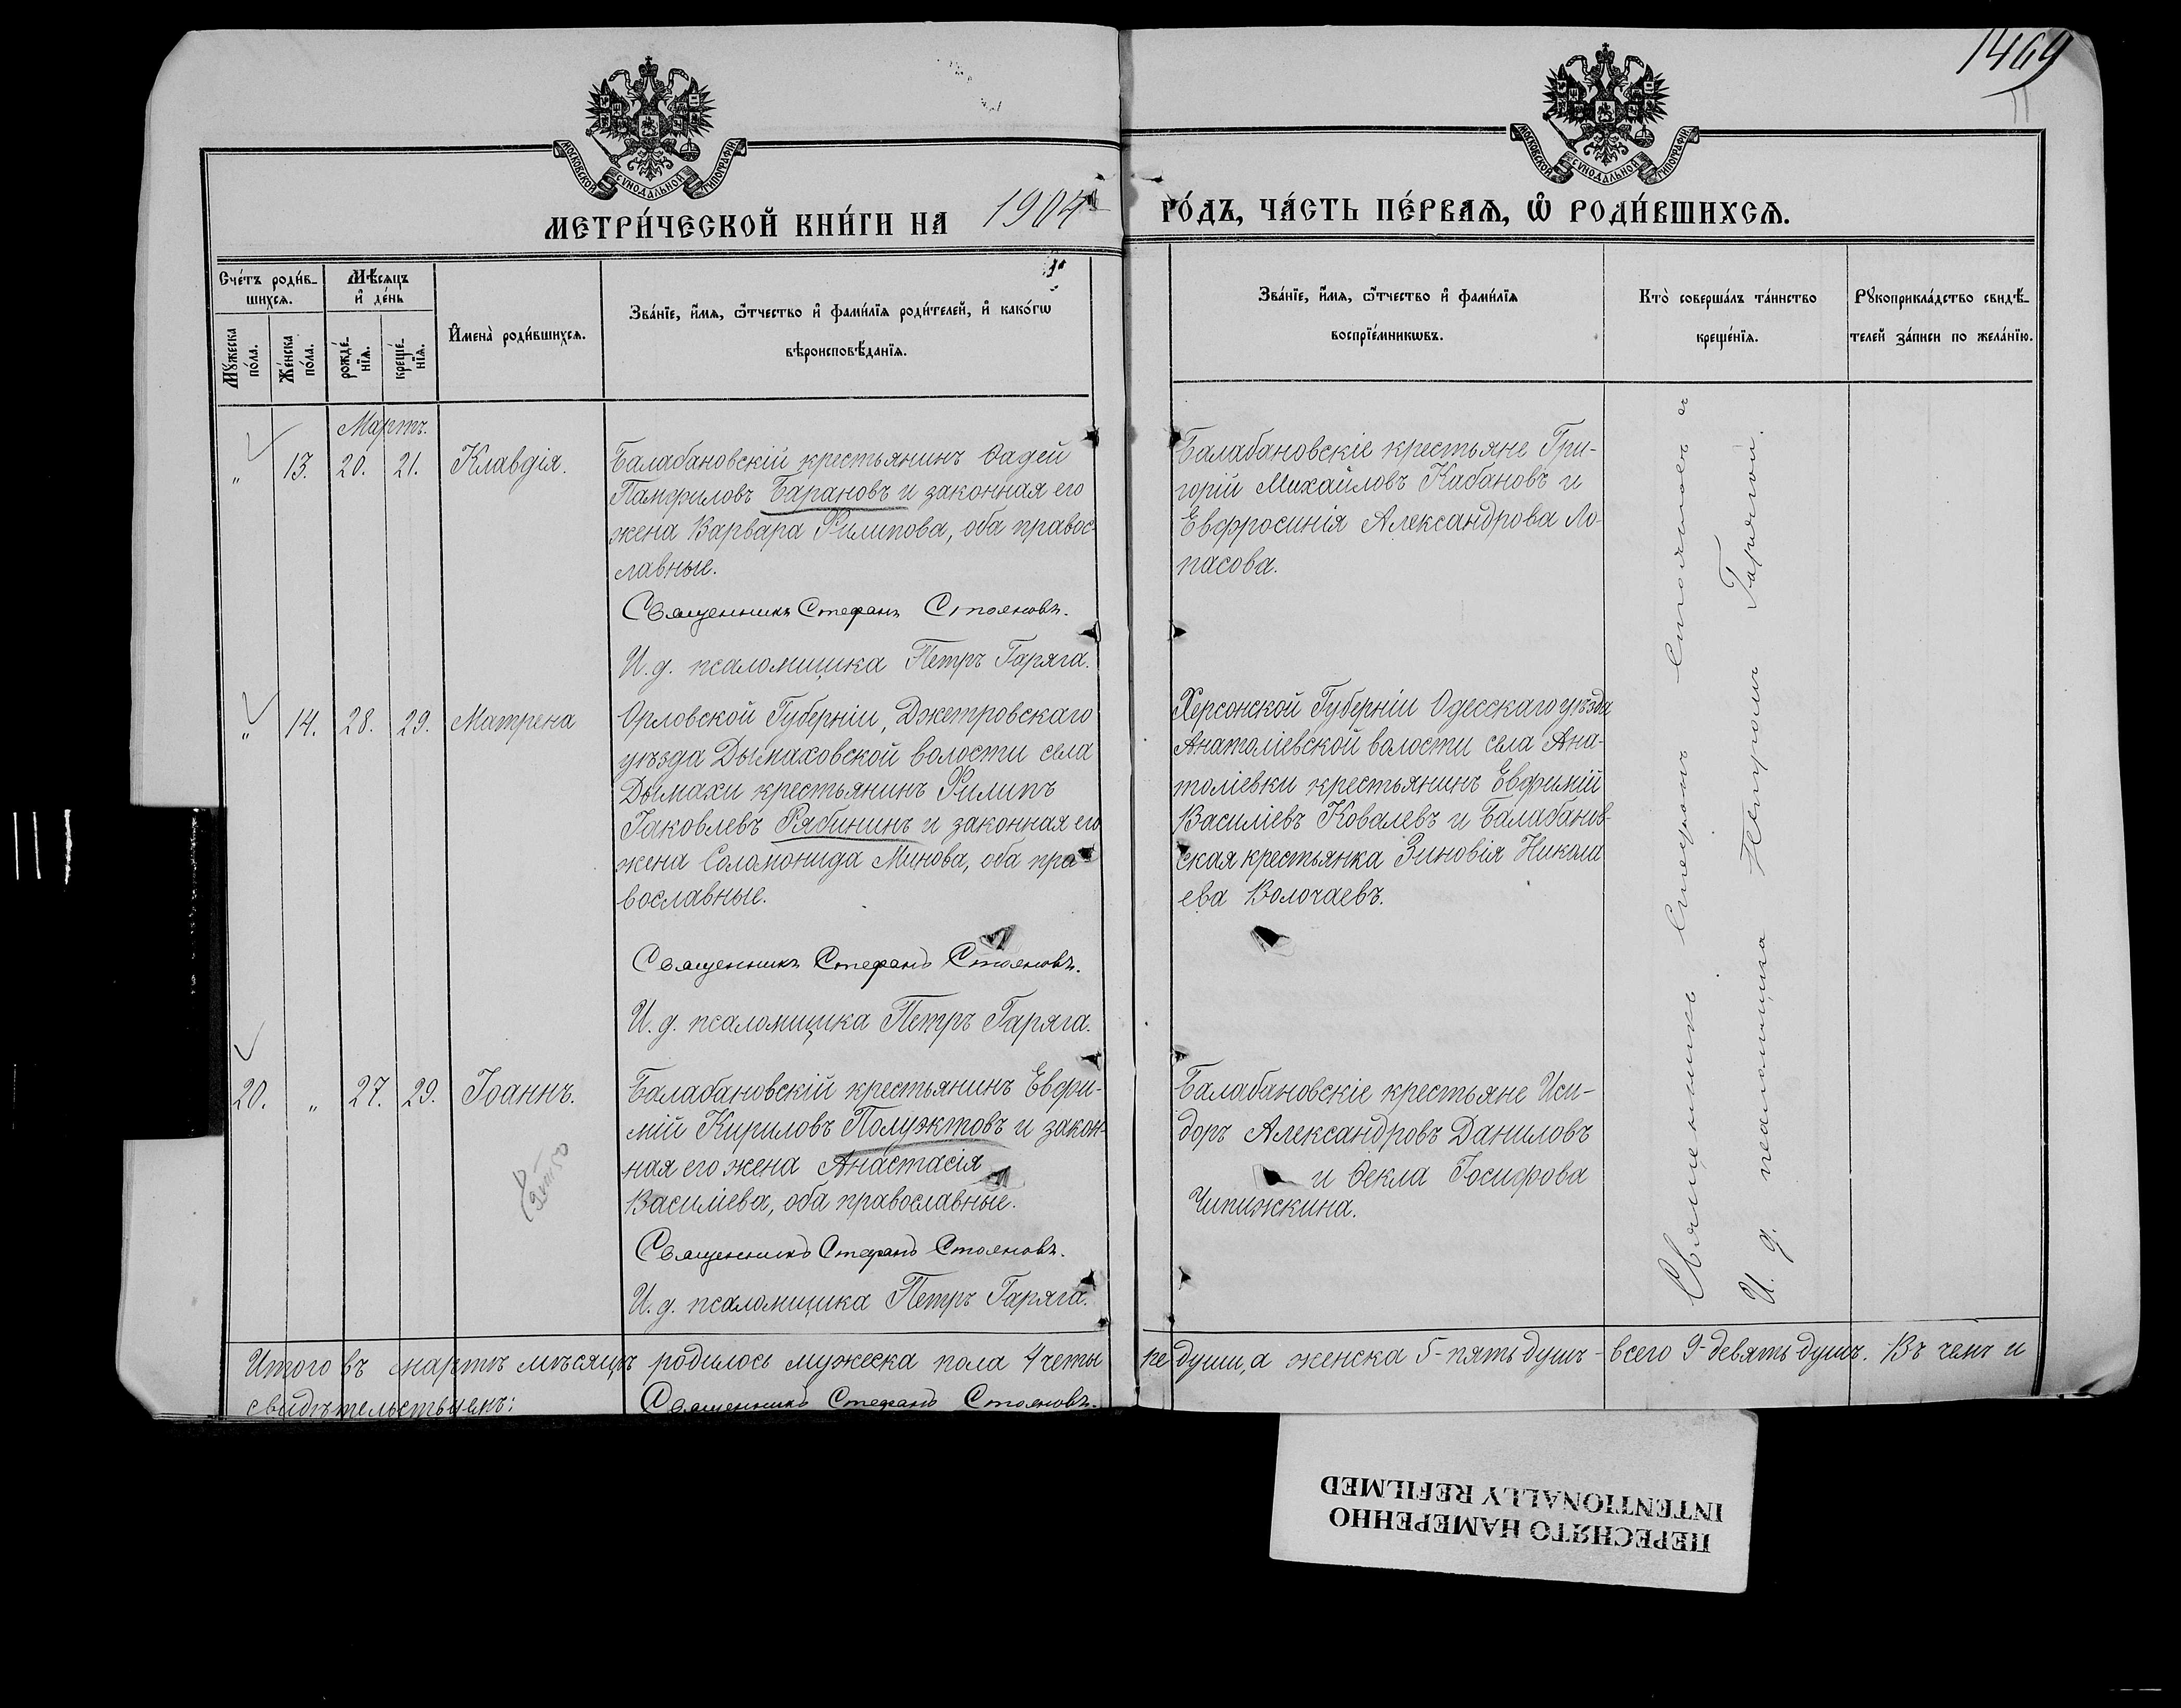 1469
МОСКОВСКОЙ СѴНОДАЛЬНОЙ ТИПОГРАФІИ.
МОСКОВСКОЙ СѴНОДАЛЬНОЙ ТИПОГРАФІИ.
МЕТРИ́ЧЕСКОЙ КНИ́ГИ НА 1904 ГО́ДЪ, ЧА́СТЬ ПЕ́РВАѦ, Ѡ҆ РОДИ́ВШИХСѦ.
Сче́тъ роди́в-
шихсѧ.
Мѣ́сѧцъ
и҆ де́нь
Мꙋ́жеска
по́ла.
Же́нска
по́ла.
рожде́-
нїѧ.
креще́-
нїѧ.
И҆мена̀ роди́вшихсѧ.
Зва́нїе, и҆́мѧ, ѻ҆́тчество и҆ фами́лїѧ роди́телей, и҆ како́гѡ
вѣроисповѣ́данїѧ.
Зва́нїе, и҆́мѧ, ѻ҆́тчество и҆ фами́лїѧ
воспрїе́мникѡвъ.
Кто̀ соверша́лъ та́инство
креще́нїѧ.
Рꙋкоприкла́дство свидѣ́-
телей за́писи по жела́нїю.
Мартъ.
" 13. 20. 21. Клавдія.
Балабановскій крестьянинъ Ѳадей
Памфиловъ Барановъ и законная его
жена Варвара Филипова, оба правос-
лавные.
Священникъ Стефанъ Стояновъ.
И. д. псаломщика Петръ Гаряга.
Балабановскіе крестьяне Гри-
горій Михайловъ Кабановъ и
Евфросинія Александрова Ло-
пасова.
" 14. 28. 29. Матрена
Орловской Губерніи, Джетровскаго
уѣзда Дымаховской волости села
Дымахи крестьянинъ Филипъ
Іаковлевъ Рябининъ и законная его
жена Соломонида Минова, оба пра-
вославные.
Священникъ Стефанъ Стояновъ.
И. д. псаломщика Петръ Гаряга.
Херсонской Губерніи Одесскаго уѣзда
Анатоліевской волости села Ана-
толіевки крестьянинъ Евфимій
Василіевъ Ковалевъ и Балабанов-
ская крестьянка Зиновія Никола
ева Волочаевъ.
20. " 27. 29. Іоаннъ.
Балабановскій крестьянинъ Евфи-
мій Кириловъ Полуэктовъ и закон-
ная его жена Анастасія
Василіева, оба православные.
Священникъ Стефанъ Стояновъ.
И. д. псаломщика Петръ Гаряга.
Балабановскіе крестьяне Иси-
доръ Александровъ Даниловъ
и Ѳекла Іосифова
Чипижкина.
Священникъ Стефанъ Стояновъ и
И. д. псаломщика Петромъ Гарягой.
Итого въ мартѣ мѣсяцѣ родилось мужеска пола 4 четы
ре души, а женска 5 - пять душъ - всего 9 - девять душъ. Въ чемъ и
свидѣтельствуемъ:
Священникъ Стефанъ Стояновъ.
ПЕРЕСНЯТО НАМЕРЕННО
INTENTIONALLY REFILMED